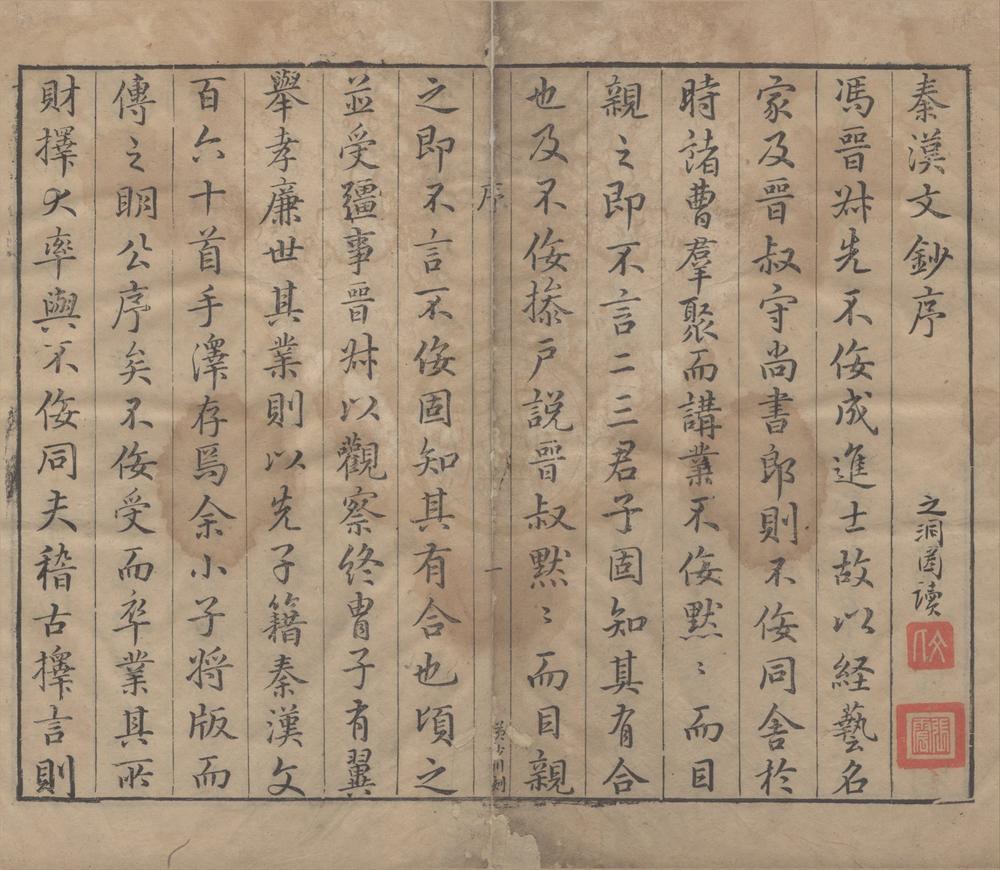 秦漢文鈔序
之洞圈读
馮晉叔先不侫成進士故以経藝名
家及晉叔守尚書郎則不侫同舍於
時諸曹羣聚而講業不侫默〻而目
親之即不言二三君子固知其有合
也及不侫掾戸説晉叔默〻而目親
序
一
之即不言不侫固知其有合也頃之
並受疆事晉叔以觀察終胄子有翼
舉孝廉世其業則以先子籍秦漢文
百六十首手澤存焉余小子将版而
傳之明公序矣不侫受而卒業其所
財擇大率與不侫同夫稽古擇言則